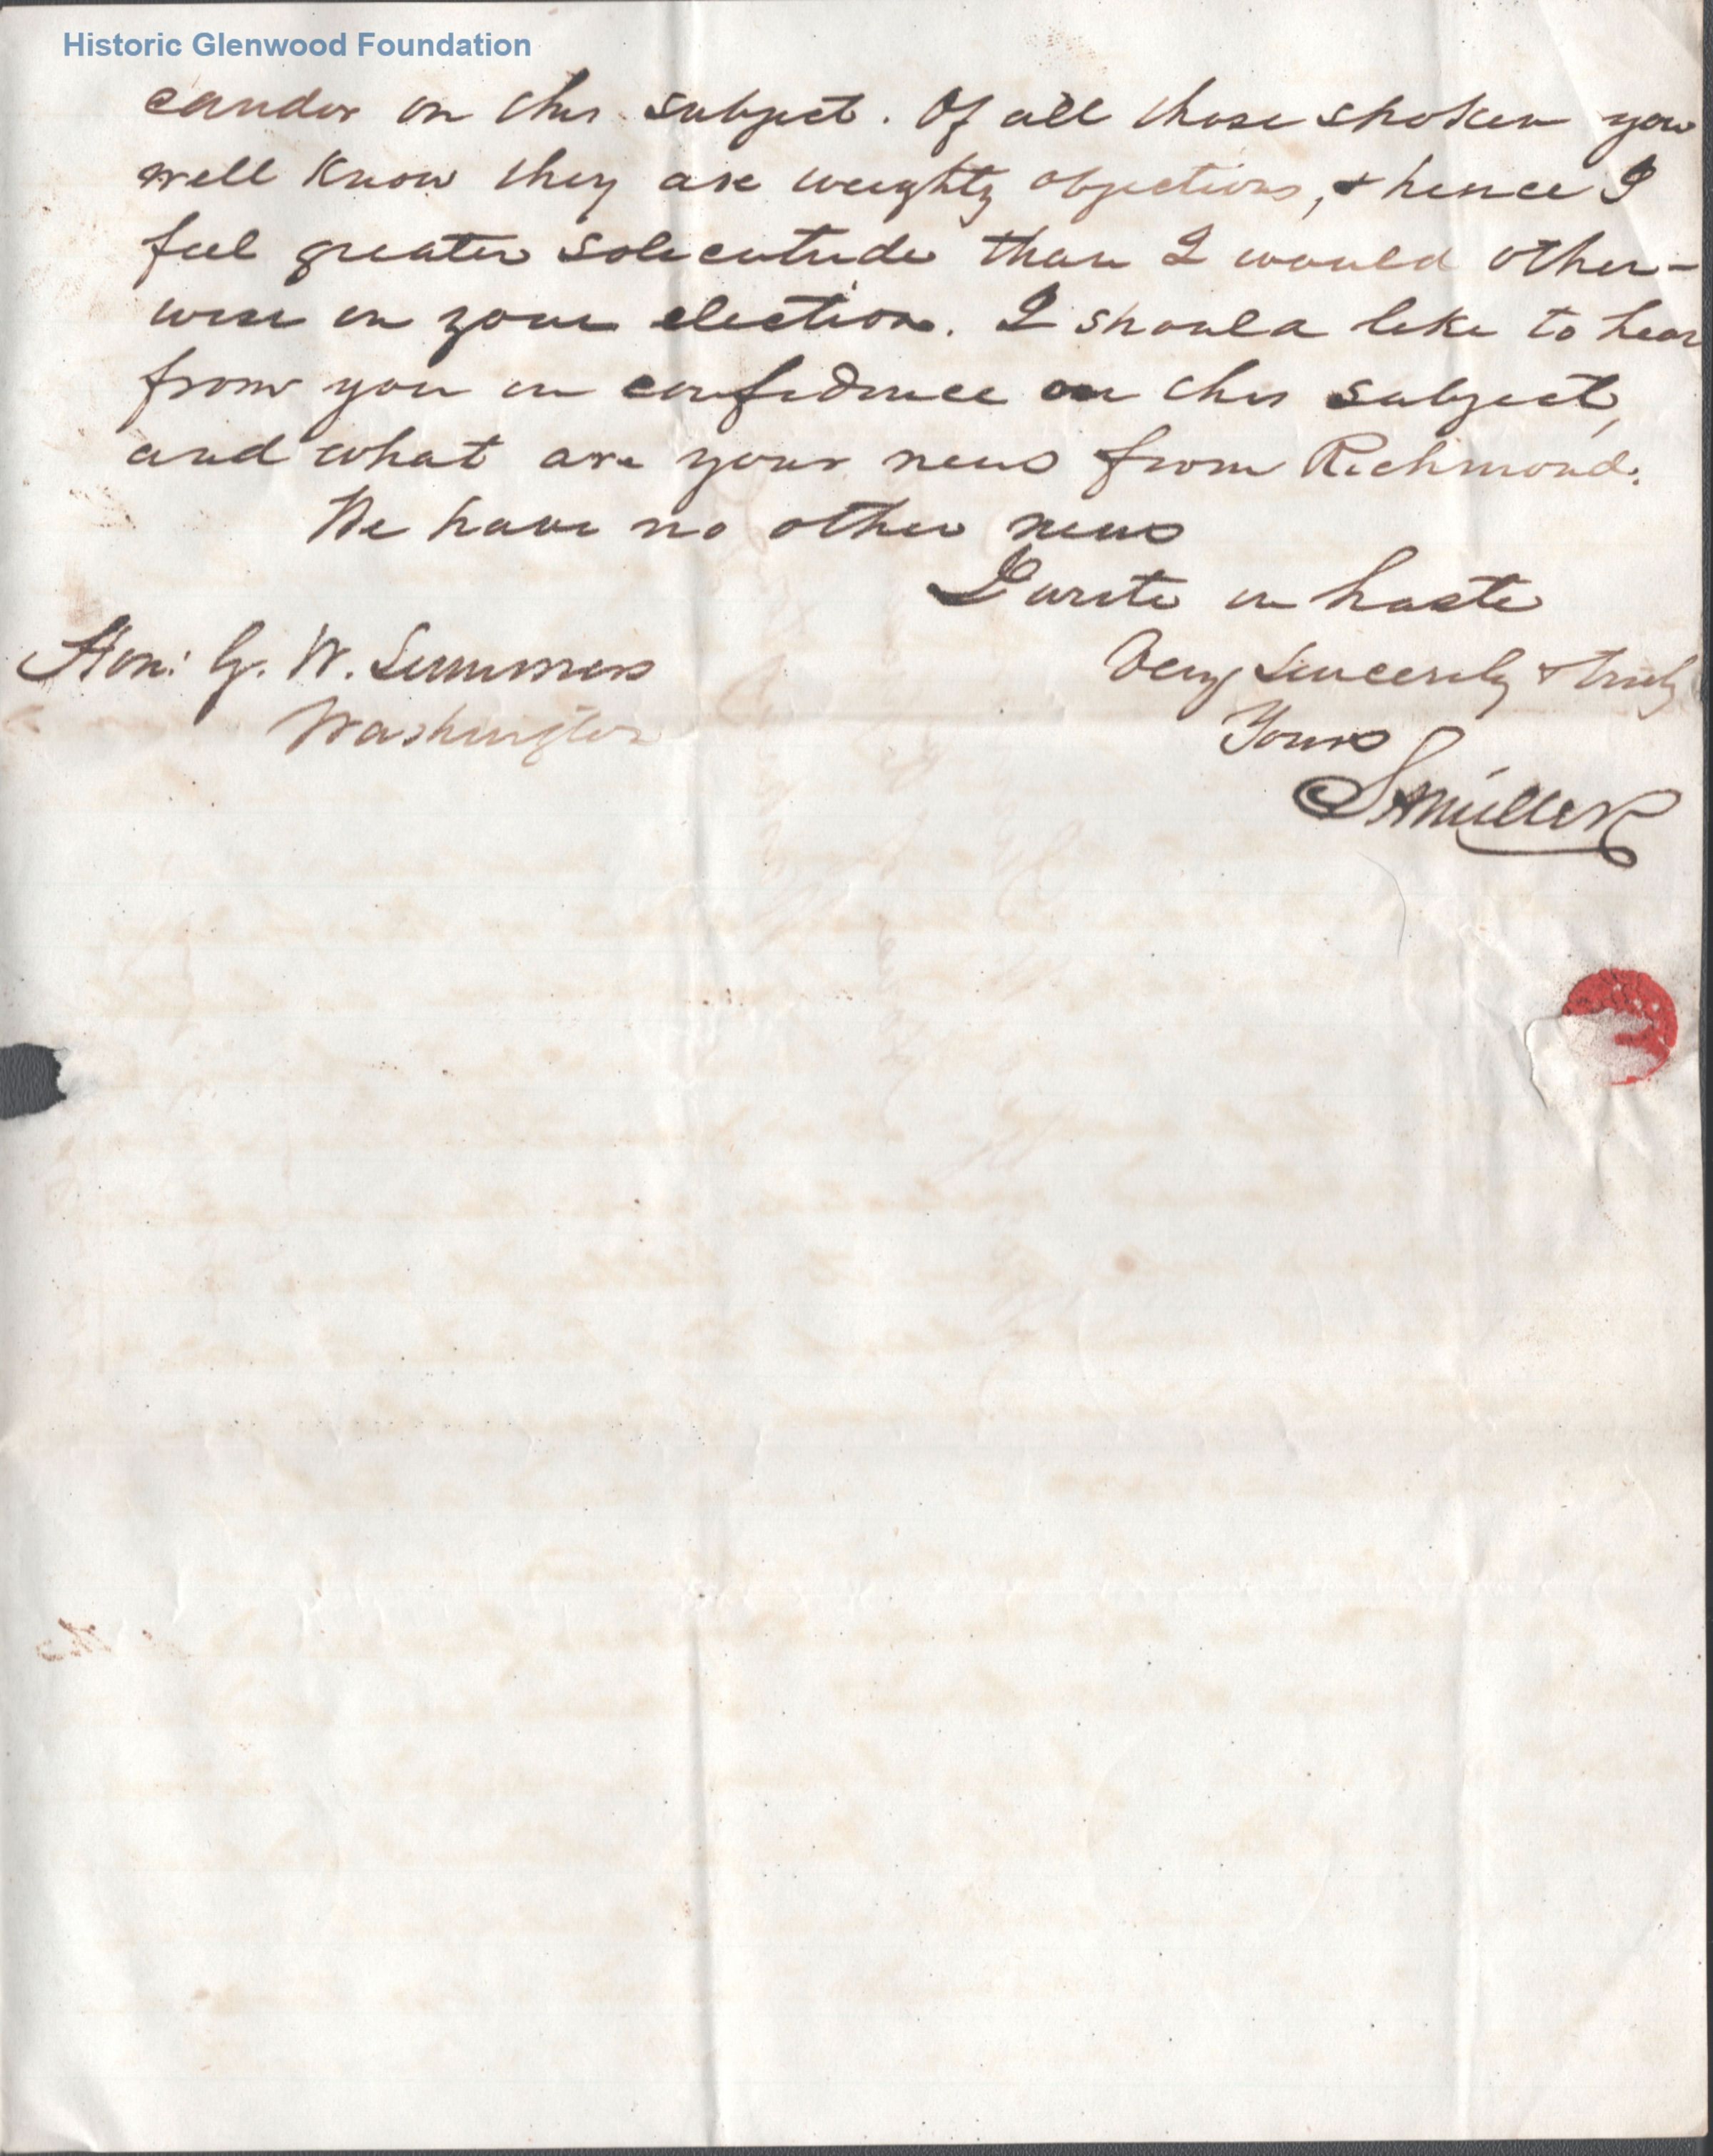 Historic Glenwood Foundation
candor on this subject. Of all those spoken you
well know they are weighty objections, & hence I
feel greater solicitude than I would other-
wise in your election. I should like to hear
from you in confidence on this subject,
and what are your news from Richmond.
We have no other news
I write in haste
Hon: G. W. Summers
Very sincerely & truly
Washington
Yours
SAMiller